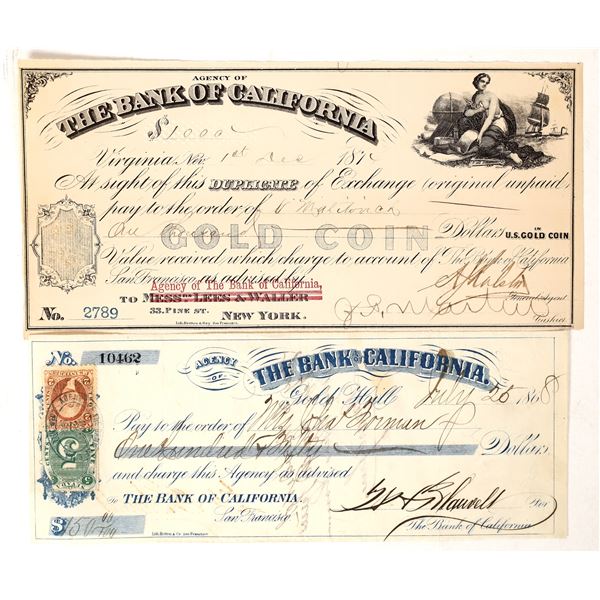 AGENCY OF
THE BANK OF CALIFORNIA
$1000
Virginia, Nev. 1st Dec 187
At sight of this DUPLICATE of Exchange (original unpaid)
pay to the order of V Malitovich
One thousand Dollars IN U.S. GOLD COIN
GOLD COIN
Value received which charge to account of The Bank of California
San Francisco as advised by
Agency of The Bank of California,
TO MESSRS LEES & WALLER
33, PINE ST. NEW YORK.
A J Ralston
Financial Agent
Cashier
No. 2789
No. 10462
AGENCY OF THE BANK OF CALIFORNIA.
Gold Hill July 25 1868
Pay to the order of Norman
One hundred & Fifty Dollars,
and charge this Agency as advised
To THE BANK OF CALIFORNIA.
San Francisco
For
The Bank of California
$150